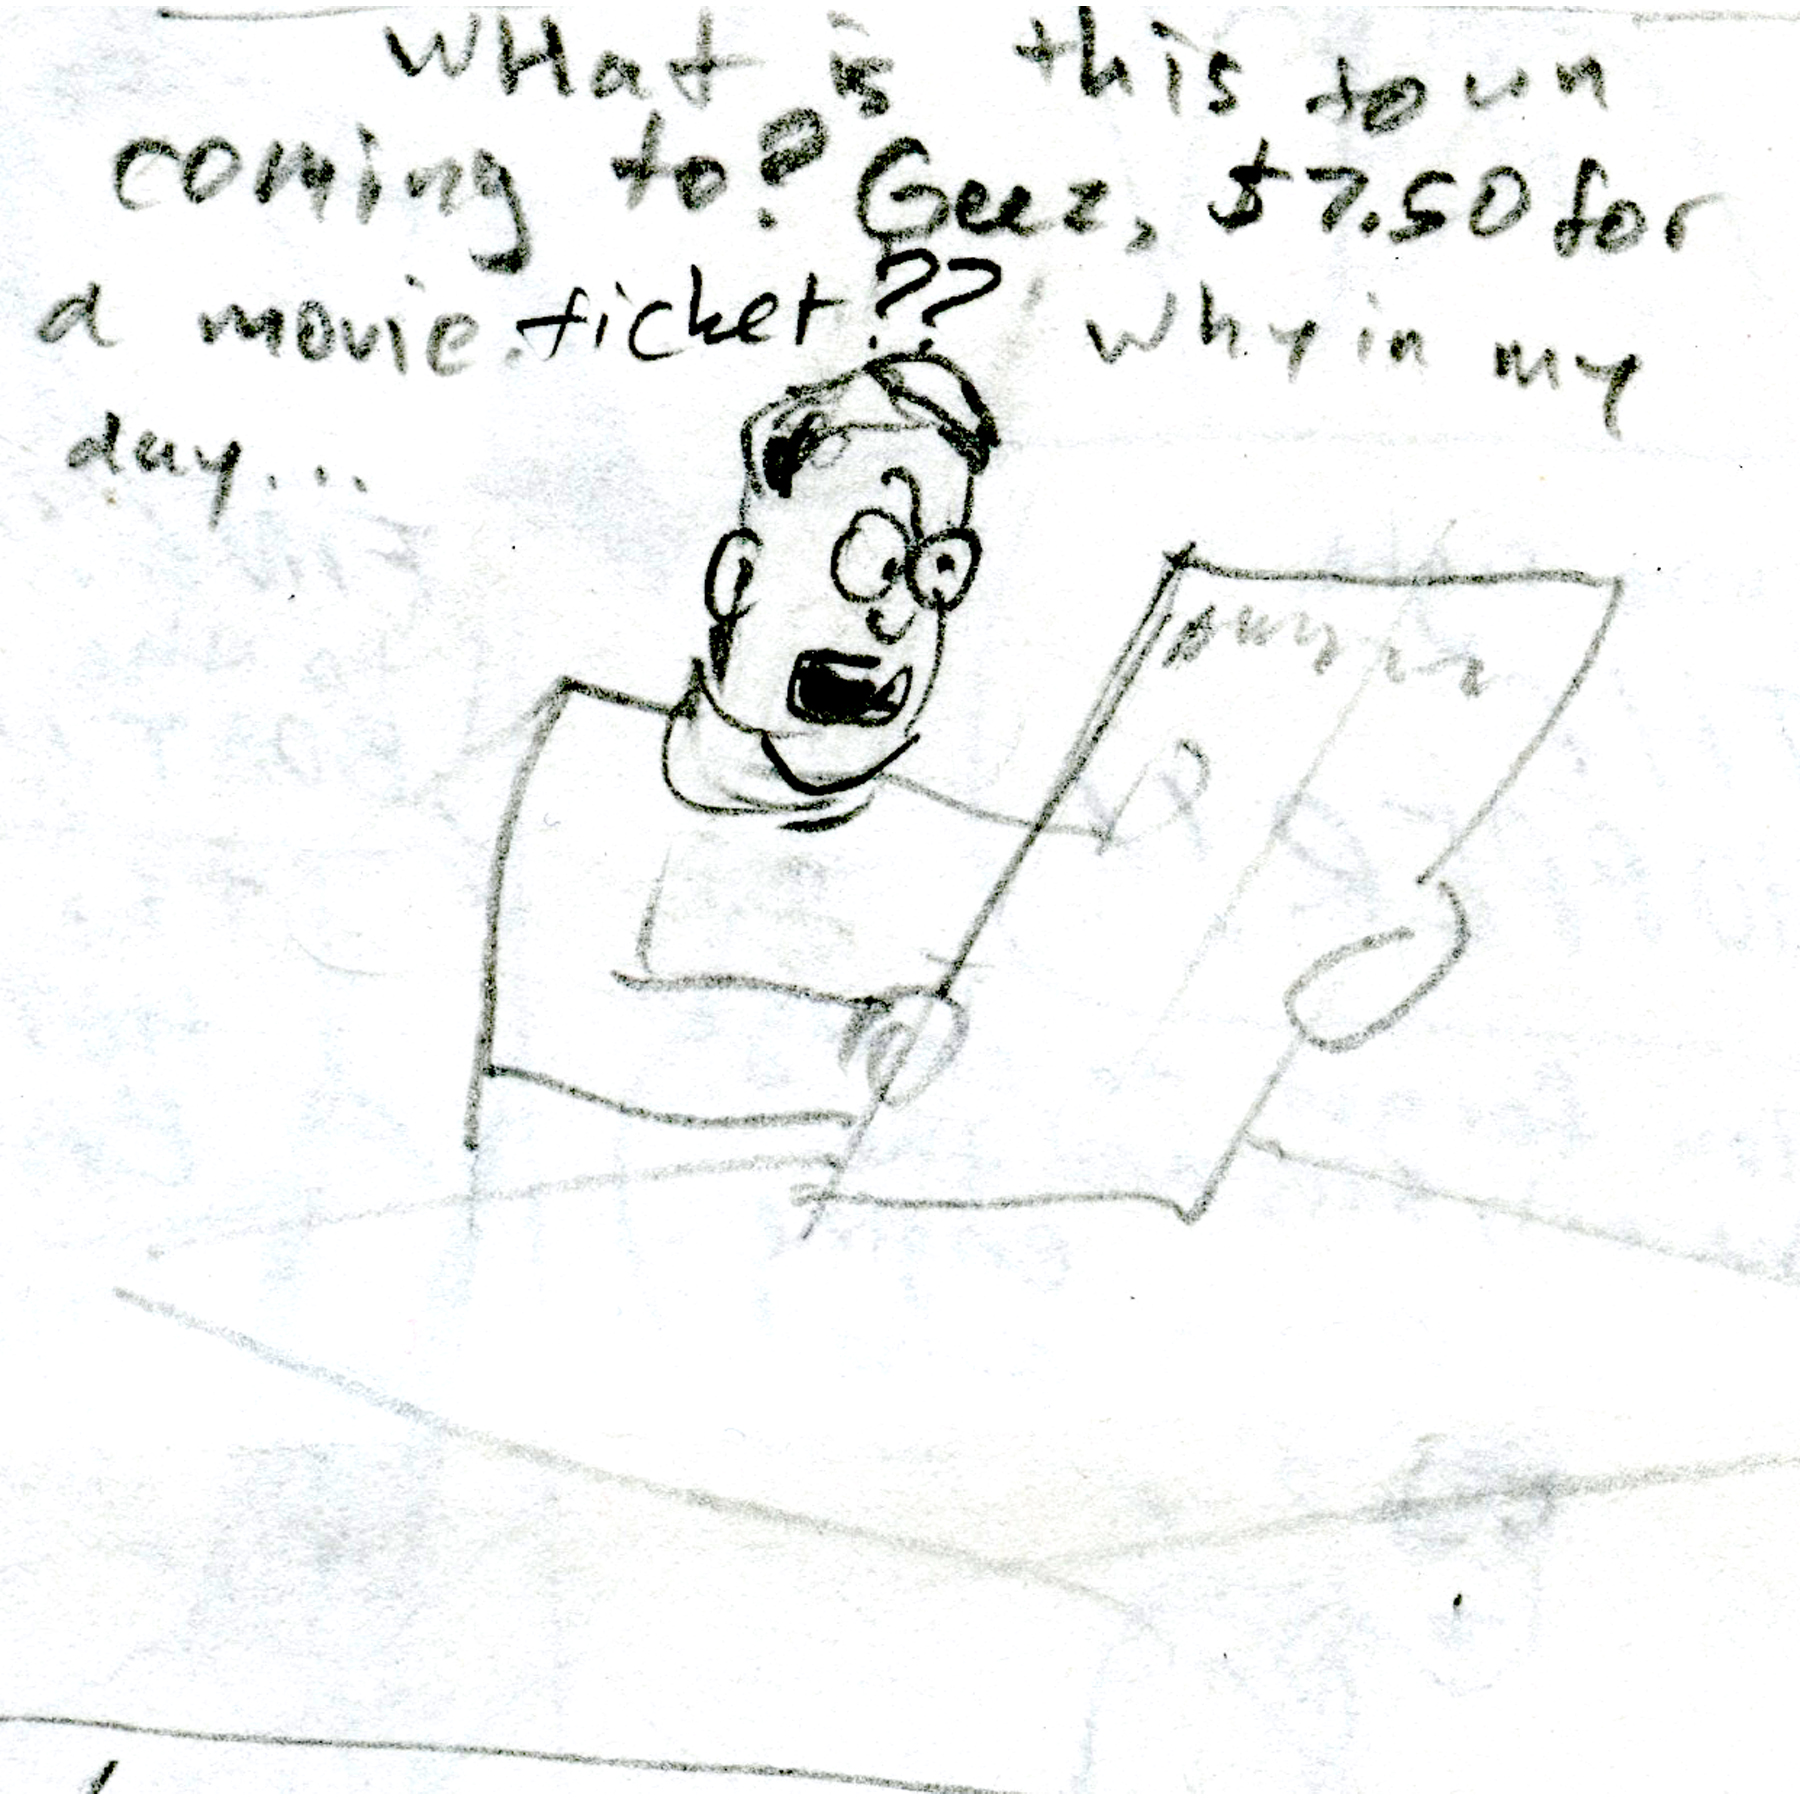 WHat is this town
coming to? Geez, $7.50 for
a movie ticket?? Why in my
day...